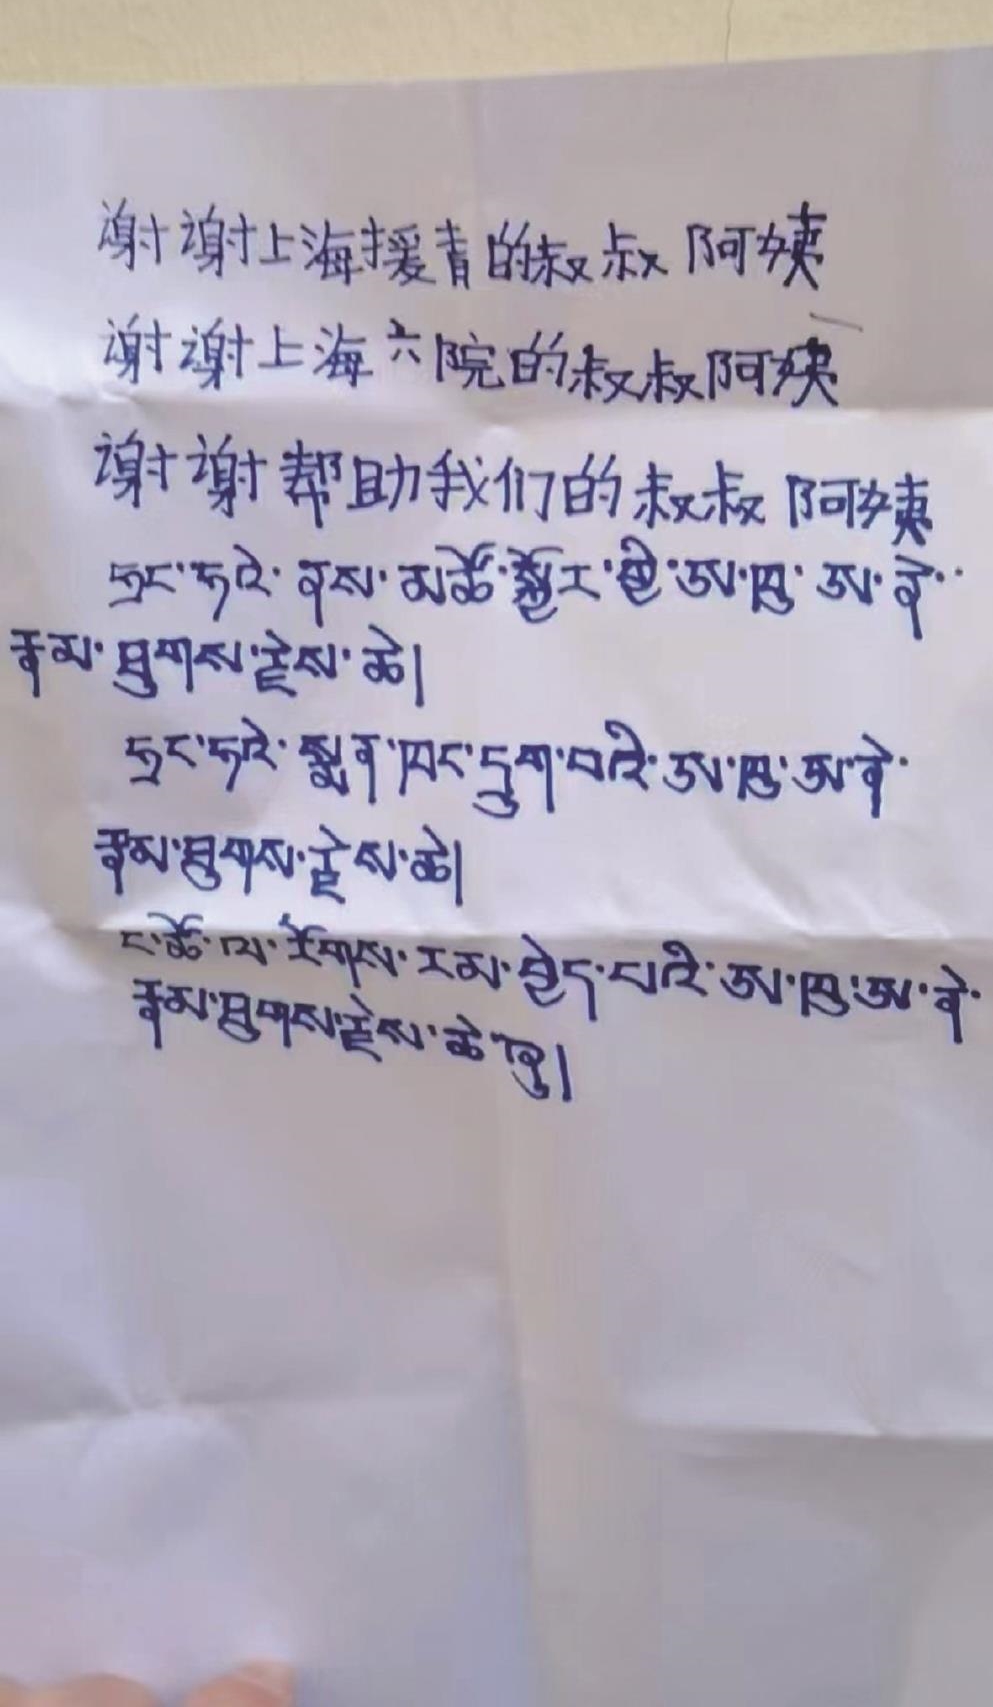 谢谢上海援青的叔叔阿姨
谢谢上海六院的叔叔阿姨
谢谢帮助我们的叔叔阿姨
ཧྲང་ཧའེ་ ནས་ མཚོ་སྐྱོར་གྱི་ཨ་ཁུ་ ཨ་ནེ་
རྣམ་ ཐུགས་རྗེས་ ཆེ།
ཧྲང་ཧའེ་ སྨན་ཁང་དྲུག་པའི་ཨ་ཁུ་ཨ་ནེ་
རྣམ་ཐུགས་རྗེས་ཆེ།
ང་ཚོ་ལ་ རོགས་རམ་བྱེད་པའི་ཨ་ཁུ་ཨ་ནེ་
རྣམ་ཐུགས་རྗེས་ཆེ་ཞུ།